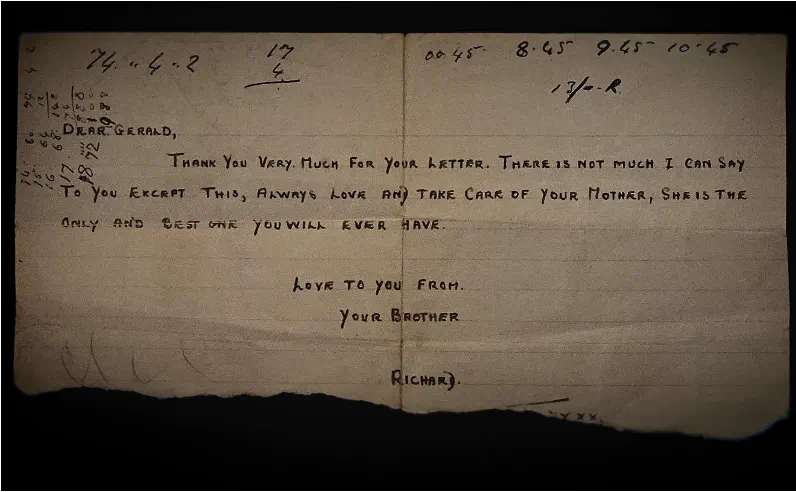 74 . 4 . 2
17
4
00.45 8.45 9.45 10.45
13/-. R.
DEAR. GERALD,
THANK YOU VERY. MUCH FOR YOUR LETTER. THERE IS NOT MUCH I CAN SAY
TO YOU EXCEPT THIS, ALWAYS LOVE AND TAKE CARE OF YOUR MOTHER, SHE IS THE
ONLY AND BEST ONE YOU WILL EVER HAVE.
LOVE TO YOU FROM.
YOUR BROTHER
RICHARD.
xxx.